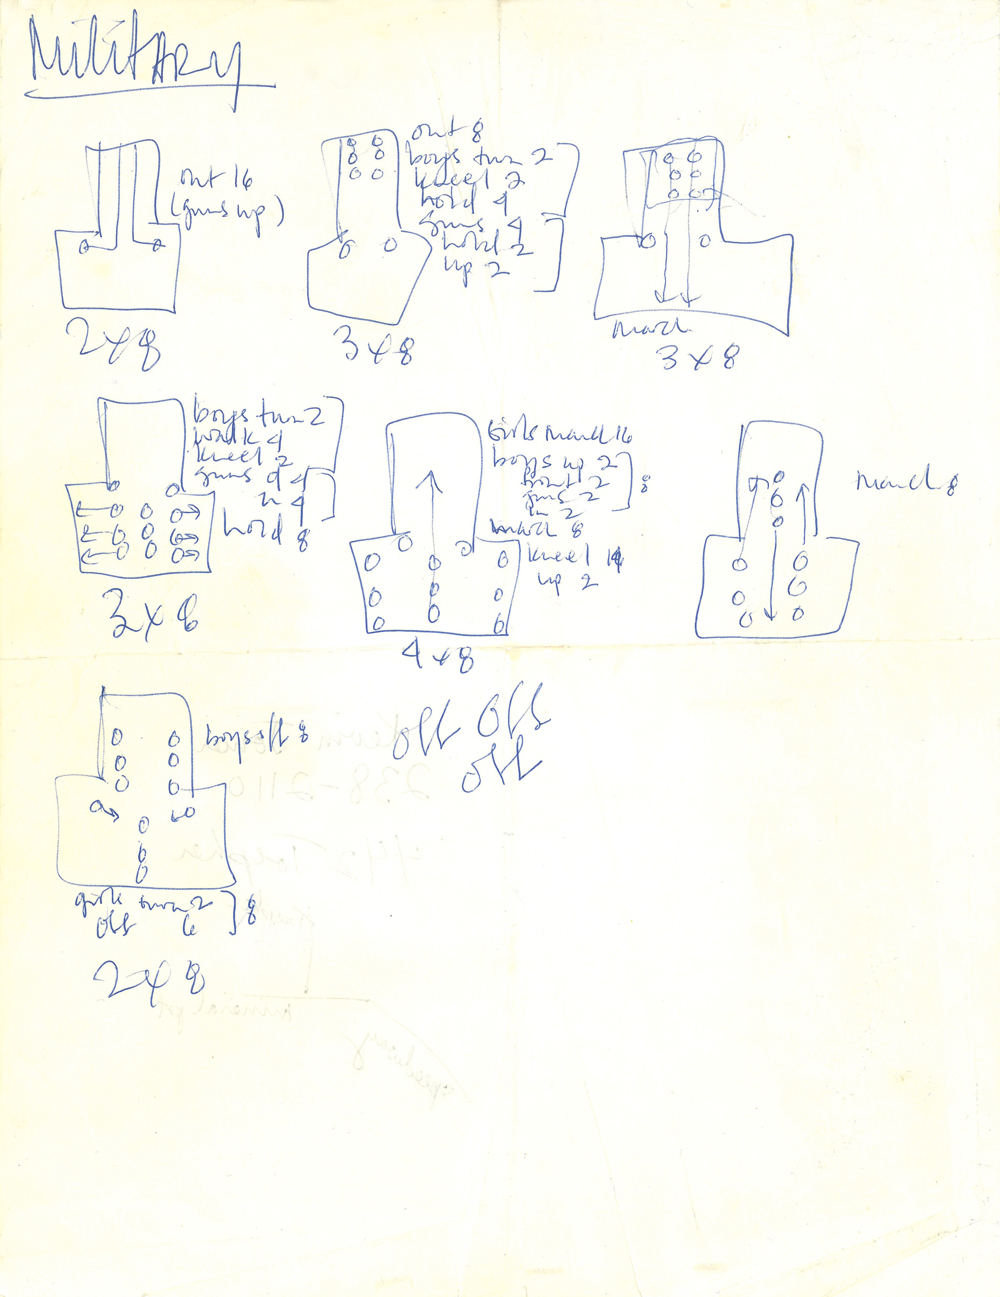 MilitARy
out 16
(guns up)
2 x 8
out 8
boys turn 2
kneel 2
hold 4
guns 4
hold 2
up 2
3 x 8
march
3 x 8
boys turn 2
walk 4
kneel 2
guns d 4
in 4
hold 8
3 x 8
Girls march 16
boys up 2
front 2
guns 2
in 2
8
march 8
kneel
up 2
4 x 8
march 8
boys off 8
off off
off
238-2110
girls turn 2
off 6
8
2 x 8